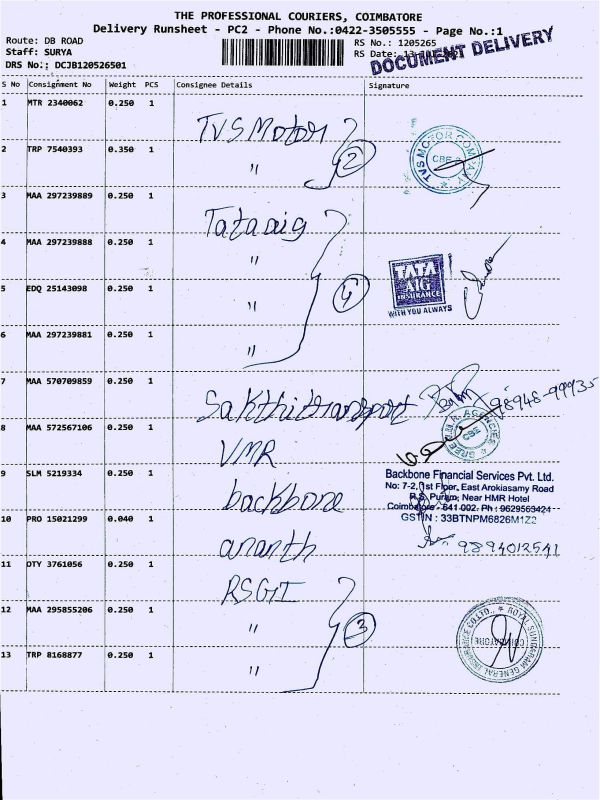 THE PROFESSIONAL COURIERS, COIMBATORE
Delivery Runsheet - PC2 - Phone No.:0422-3505555 - Page No.:1
Route: DB ROAD
Staff: SURYA
DRS No.: DCJB120526501
RS No.: 1205265
RS Date:
DOCUMENT DELIVERY
S No Consignment No Weight PCS Consignee Details Signature
1 MTR 2340062 0.250 1 TVS Motor
2 TRP 7540393 0.350 1 " 2
TVS MOTOR COMPANY CBE
3 MAA 297239889 0.250 1 Tata aig
4 MAA 297239888 0.250 1 "
5 EDQ 25143098 0.250 1 "
6 MAA 297239881 0.250 1 "
TATA
AIG
INSURANCE
WITH YOU ALWAYS
7 MAA 570709859 0.250 1 Sakthitransport 98948-99935
8 MAA 572567106 0.250 1 VMR
CBE
9 SLM 5219334 0.250 1 backbone
Backbone Financial Services Pvt. Ltd.
No: 7-2, 1st Floor, East Arokiasamy Road
R.S. Puram, Near HMR Hotel
Coimbatore - 641 002. Ph : 9629563424
GSTIN : 33BTNPM6826M1Z2
10 PRO 15021299 0.040 1 ananth 9894012541
11 DTY 3761056 0.250 1 RSGI
12 MAA 295855206 0.250 1 " 3
13 TRP 8168877 0.250 1 "
ROYAL SUNDARAM GENERAL INSURANCE CO LTD., COIMBATORE